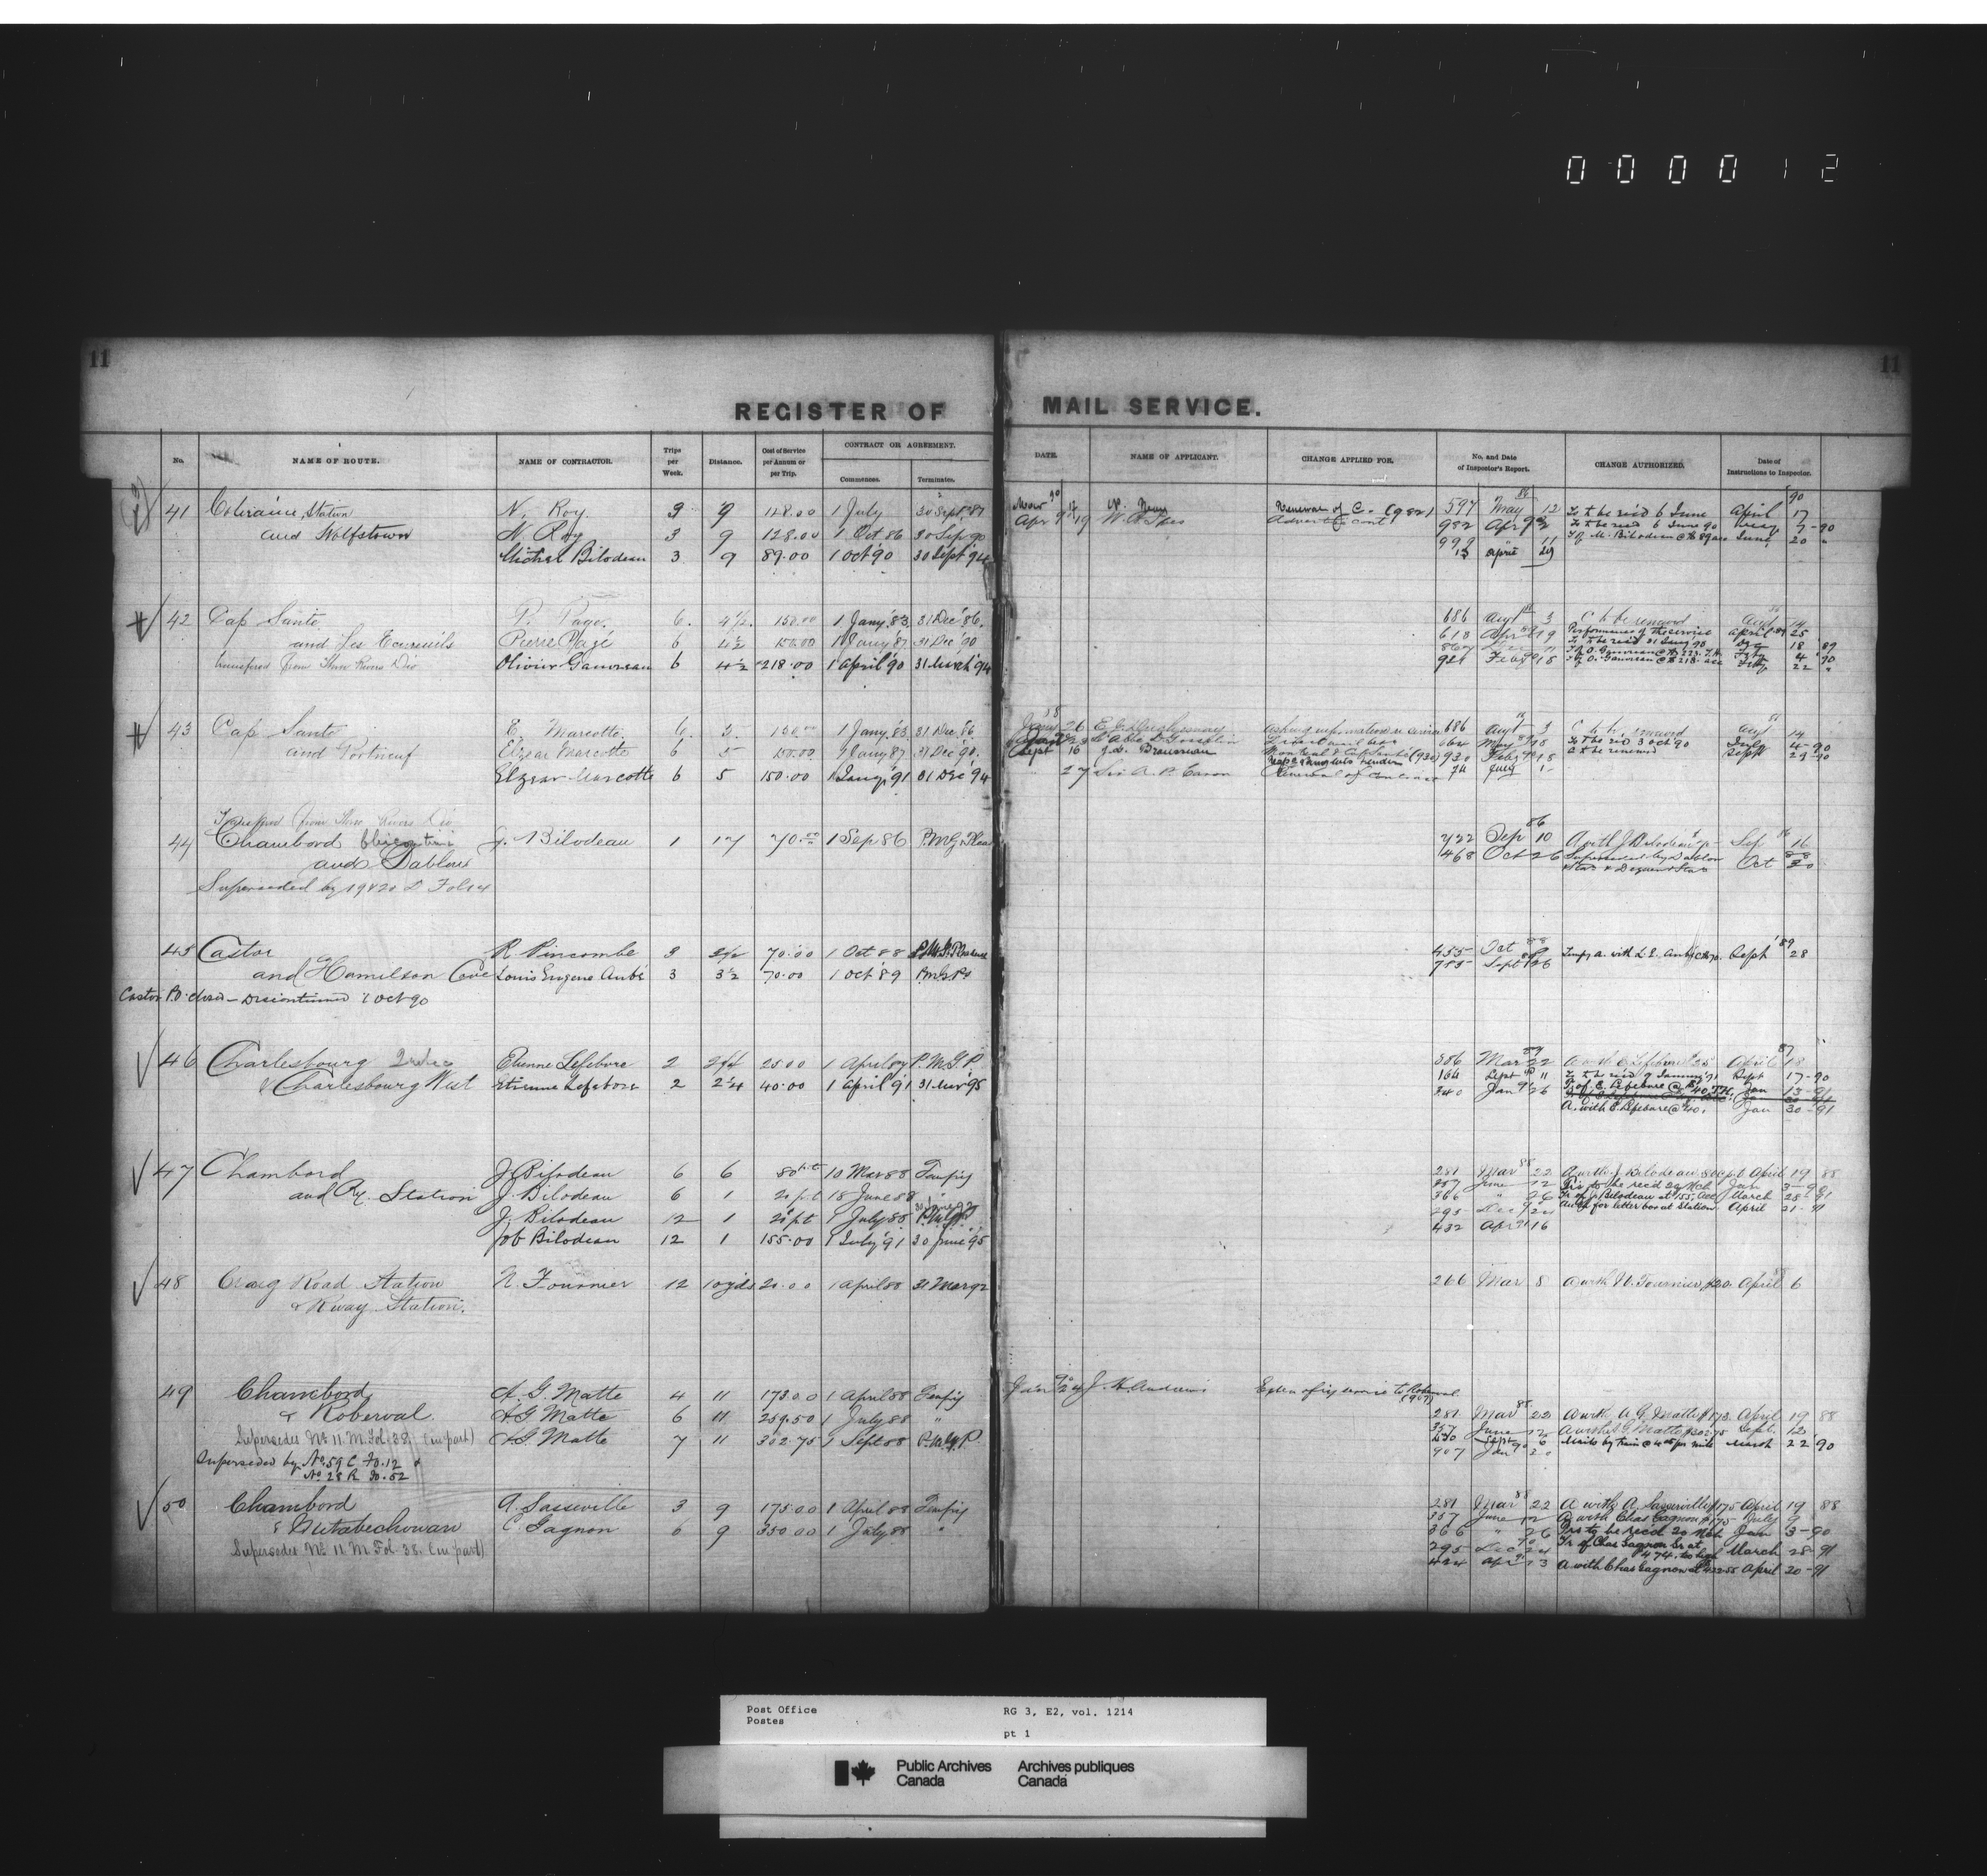 0 0 0 0 1 2
11
11
REGISTER OF MAIL SERVICE.
No. NAME OF ROUTE. NAME OF CONTRACTOR. Trips per Week. Distance. Cost of Service per Annum or per Trip. CONTRACT OR AGREEMENT. Commences. Terminates.
DATE. NAME OF APPLICANT. CHANGE APPLIED FOR. No. and Date of Inspector's Report. CHANGE AUTHORIZED. Date of Instructions to Inspector.
41 Coleraine Station N. Roy 3 9 128.00 1 July 30 Sept 87
and Wolfstown N Roy 3 9 128.00 1 Oct 86 30 Sep 90
Michel Bilodeau 3 9 89.00 1 Oct '90 30 Sept '94
Renewal of C. (982) 597 May 12 Ts to be recd 6 June April 17
Apr 982 Apr Ts to be recd 6 June 90
999 T of M. Bilodeau @ $89 acc June 20 "
13 april
42 Cap Santé P. Page. 6. 4½ 150.00 1 Jany. '83. 31 Dec '86.
and Les Ecureuils Pierre Pagé 6 4½ 150.00 1 Jany '87 31 Dec '90
transfered from Three Rivers Div Olivier Gauvreau 6 4½ 218.00 1 April '90 31 March '94
686 Augt 3 C to be renewed Augt 14
618 Apr 19 Performance of the service April 89 25
Ts to be recd 31 Jany '90 18 89
T of O. Gauvreau 4 90
921 Feby 18 T of O. Gauvreau @ $218 acc 22 "
43 Cap Santé E. Marcotte. 6. 5. 150.00 1 Jany. '83 31 Dec. 86.
and Portneuf Elzear Marcotte 6 5 150.00 1 Jany '87 31 Dec '90.
Elzear Marcotte 6 5 150.00 1 Jany '91 31 Dec '94
686 Augt 3 C to be renewed Augt 14
May Ts to be recd 3 Oct '90 July 4-90
Sept 16 930 Feby 18 C to be renewed Sept 29-90
27 Sir A. P. Caron Renewal of contract 74 July
Transfered from Three Rivers Div
44 Chambord Chicoutimi J. Bilodeau 1 17 70.00 1 Sep 86 P.M.G. Pleas
and Dablon
Superseded by 19 & 20 D Fol 14
722 Sep 86 10 A with J Bilodeau Sep 86 16
468 Oct 26 Superseded by Dablon Oct 30
45 Castor R Pincombe 3 3½ 70.00 1 Oct 88 P.M.G. Pleasure
and Hamilson Cove Louis Eugene Aubé 3 3½ 70.00 1 Oct '89 P.M.G.Ps
Castor P.O. closed - Discontinued 1 Oct 90
455 Oct 88
785 Sept 89 26 Tempy a. with L. E. Aubé @ $70. Sept '89 28
46 Charlesbourg Quebec Etienne Lefebvre 2 2¼ 25.00 1 April 87 P.M.G.P.
& Charlesbourg West Etienne Lefebvre 2 2¼ 40.00 1 April '91 31 Mar '95
386 Mar 87 22 A with E Lefebvre $25 April 87 18
164 Sept 90 11 Ts to be recd 9 Jany '91 Sept 17-90
340 Jan 91 26 T. of E. Lefebvre @ $40 T.H. Jan 13-91
A. with E. Lefebvre @ $40. Jan 30-91
47 Chambord J Bilodeau 6 6 80 p.t. 10 Mar 88 Tempy
and Ry. Station J. Bilodeau 6 1 20 p.t 18 June 88 "
J. Bilodeau 12 1 20 p.t 1 July 88 P.M.G.P.
Job Bilodeau 12 1 155.00 1 July '91 30 June '95
281 Mar 88 22 A with J. Bilodeau 80c p.t. April 19 88
357 June 12 Trs to be recd 20 Mch Jan 3-90
366 " 26 Tr of J. Bilodeau at 155. Acc March 28-91
295 Dec 90 24 Auth for letter box at Station. April 21-91
432 Apr 91 16
48 Craig Road Station N. Fournier 12 10 yds 20.00 1 April 88 31 Mar 92
& Rway Station.
266 Mar 8 A with N. Fournier, $20. April 88 6
49 Chambord A. G. Matte 4 11 173.00 1 April 88 Tempy
& Roberval. A G Matte 6 11 259.50 1 July 88 "
Supersedes No. 11. M. Fol. 38. (in part) A G Matte 7 11 302.75 1 Sept 88 P.M.G.P.
Superseded by No. 59 C Fo. 12 &
No 28 R Fo. 52
Jan 90 24 J. H. Andrews Exten of ry service to Roberval. (907)
281 Mar 88 22 A with A. G. Matte $173. April 19 88
357 June 12 A with A G Matte $302.75 Sept. 12
450 Sept 6 Mails by train @ 4 cts per mile March 22 90
907 Jan 90 20
50 Chambord A. Sasseville 3 9 175.00 1 April 88 Tempy
& Metabechouan C. Gagnon 6 9 350.00 1 July 88 "
Supersedes No. 11 M Fol. 38. (in part)
281 Mar 88 22 A with A. Sasseville $175 April 19 88
357 June 12 A with Chas Gagnon $175 July 9
366 " 26 Trs to be recd 20 Mch Jan 3-90
295 Dec 90 24 Tr of Chas Gagnon Sr at $474. too high March 28-91
424 Apr 91 13 A with Chas Gagnon at April 20-91
Post Office
Postes
RG 3, E2, vol. 1214
pt 1
Public Archives Canada
Archives publiques Canada